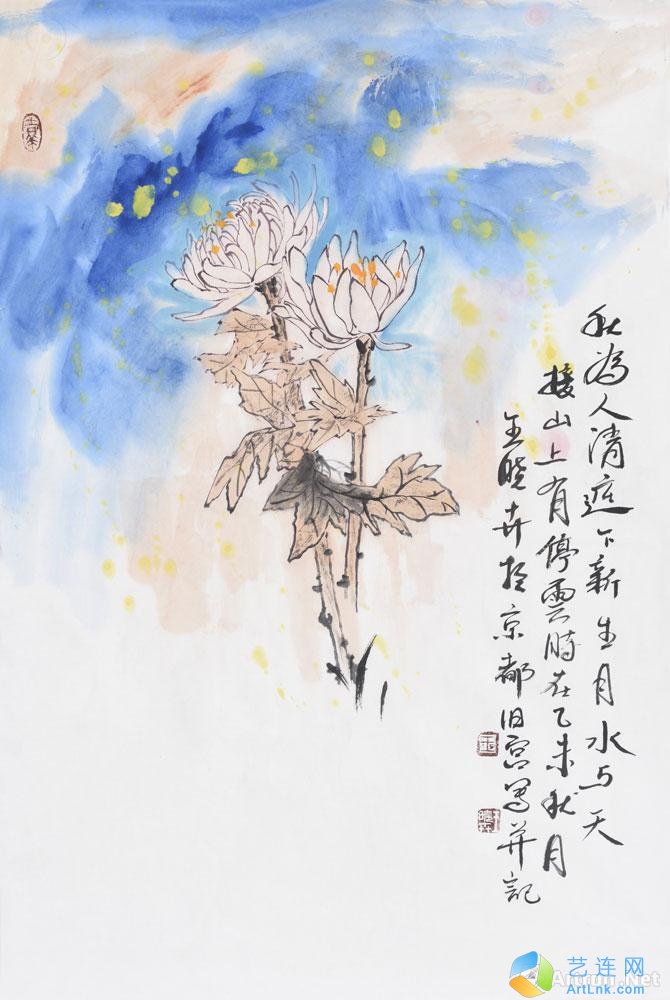 秋为人清遮下新生月水与天
接山上有停雲時在乙未秋月
王晓卉於京都旧宫写并記
艺连网
ArtLnk.com
Artron.Net